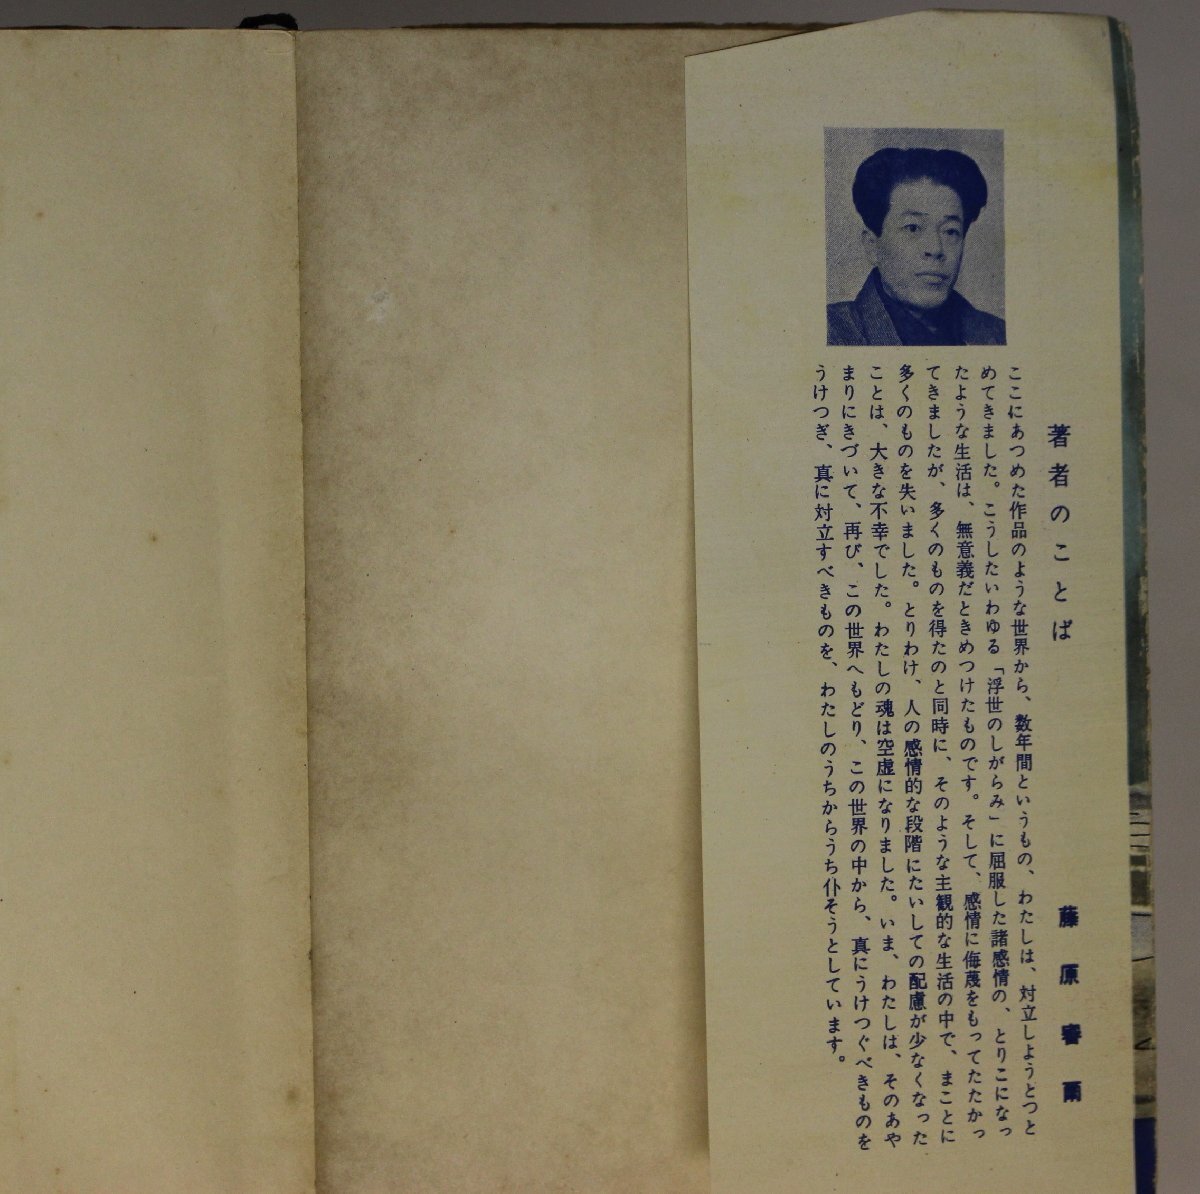 著者のことば
藤原審爾
ここにあつめた作品のような世界から、数年間というもの、わたしは、対立しようとつと
めてきました。こうしたいわゆる「浮世のしがらみ」に屈服した諸感情の、とりこになっ
たような生活は、無意義だときめつけたものです。そして、感情に侮蔑をもってたたかっ
てきましたが、多くのものを得たのと同時に、そのような主観的な生活の中で、まことに
多くのものを失いました。とりわけ、人の感情的な段階にたいしての配慮が少なくなった
ことは、大きな不幸でした。わたしの魂は空虚になりました。いま、わたしは、そのあや
まりにきづいて、再び、この世界へもどり、この世界の中から、真にうけつぐべきものを
うけつぎ、真に対立すべきものを、わたしのうちからうち仆そうとしています。